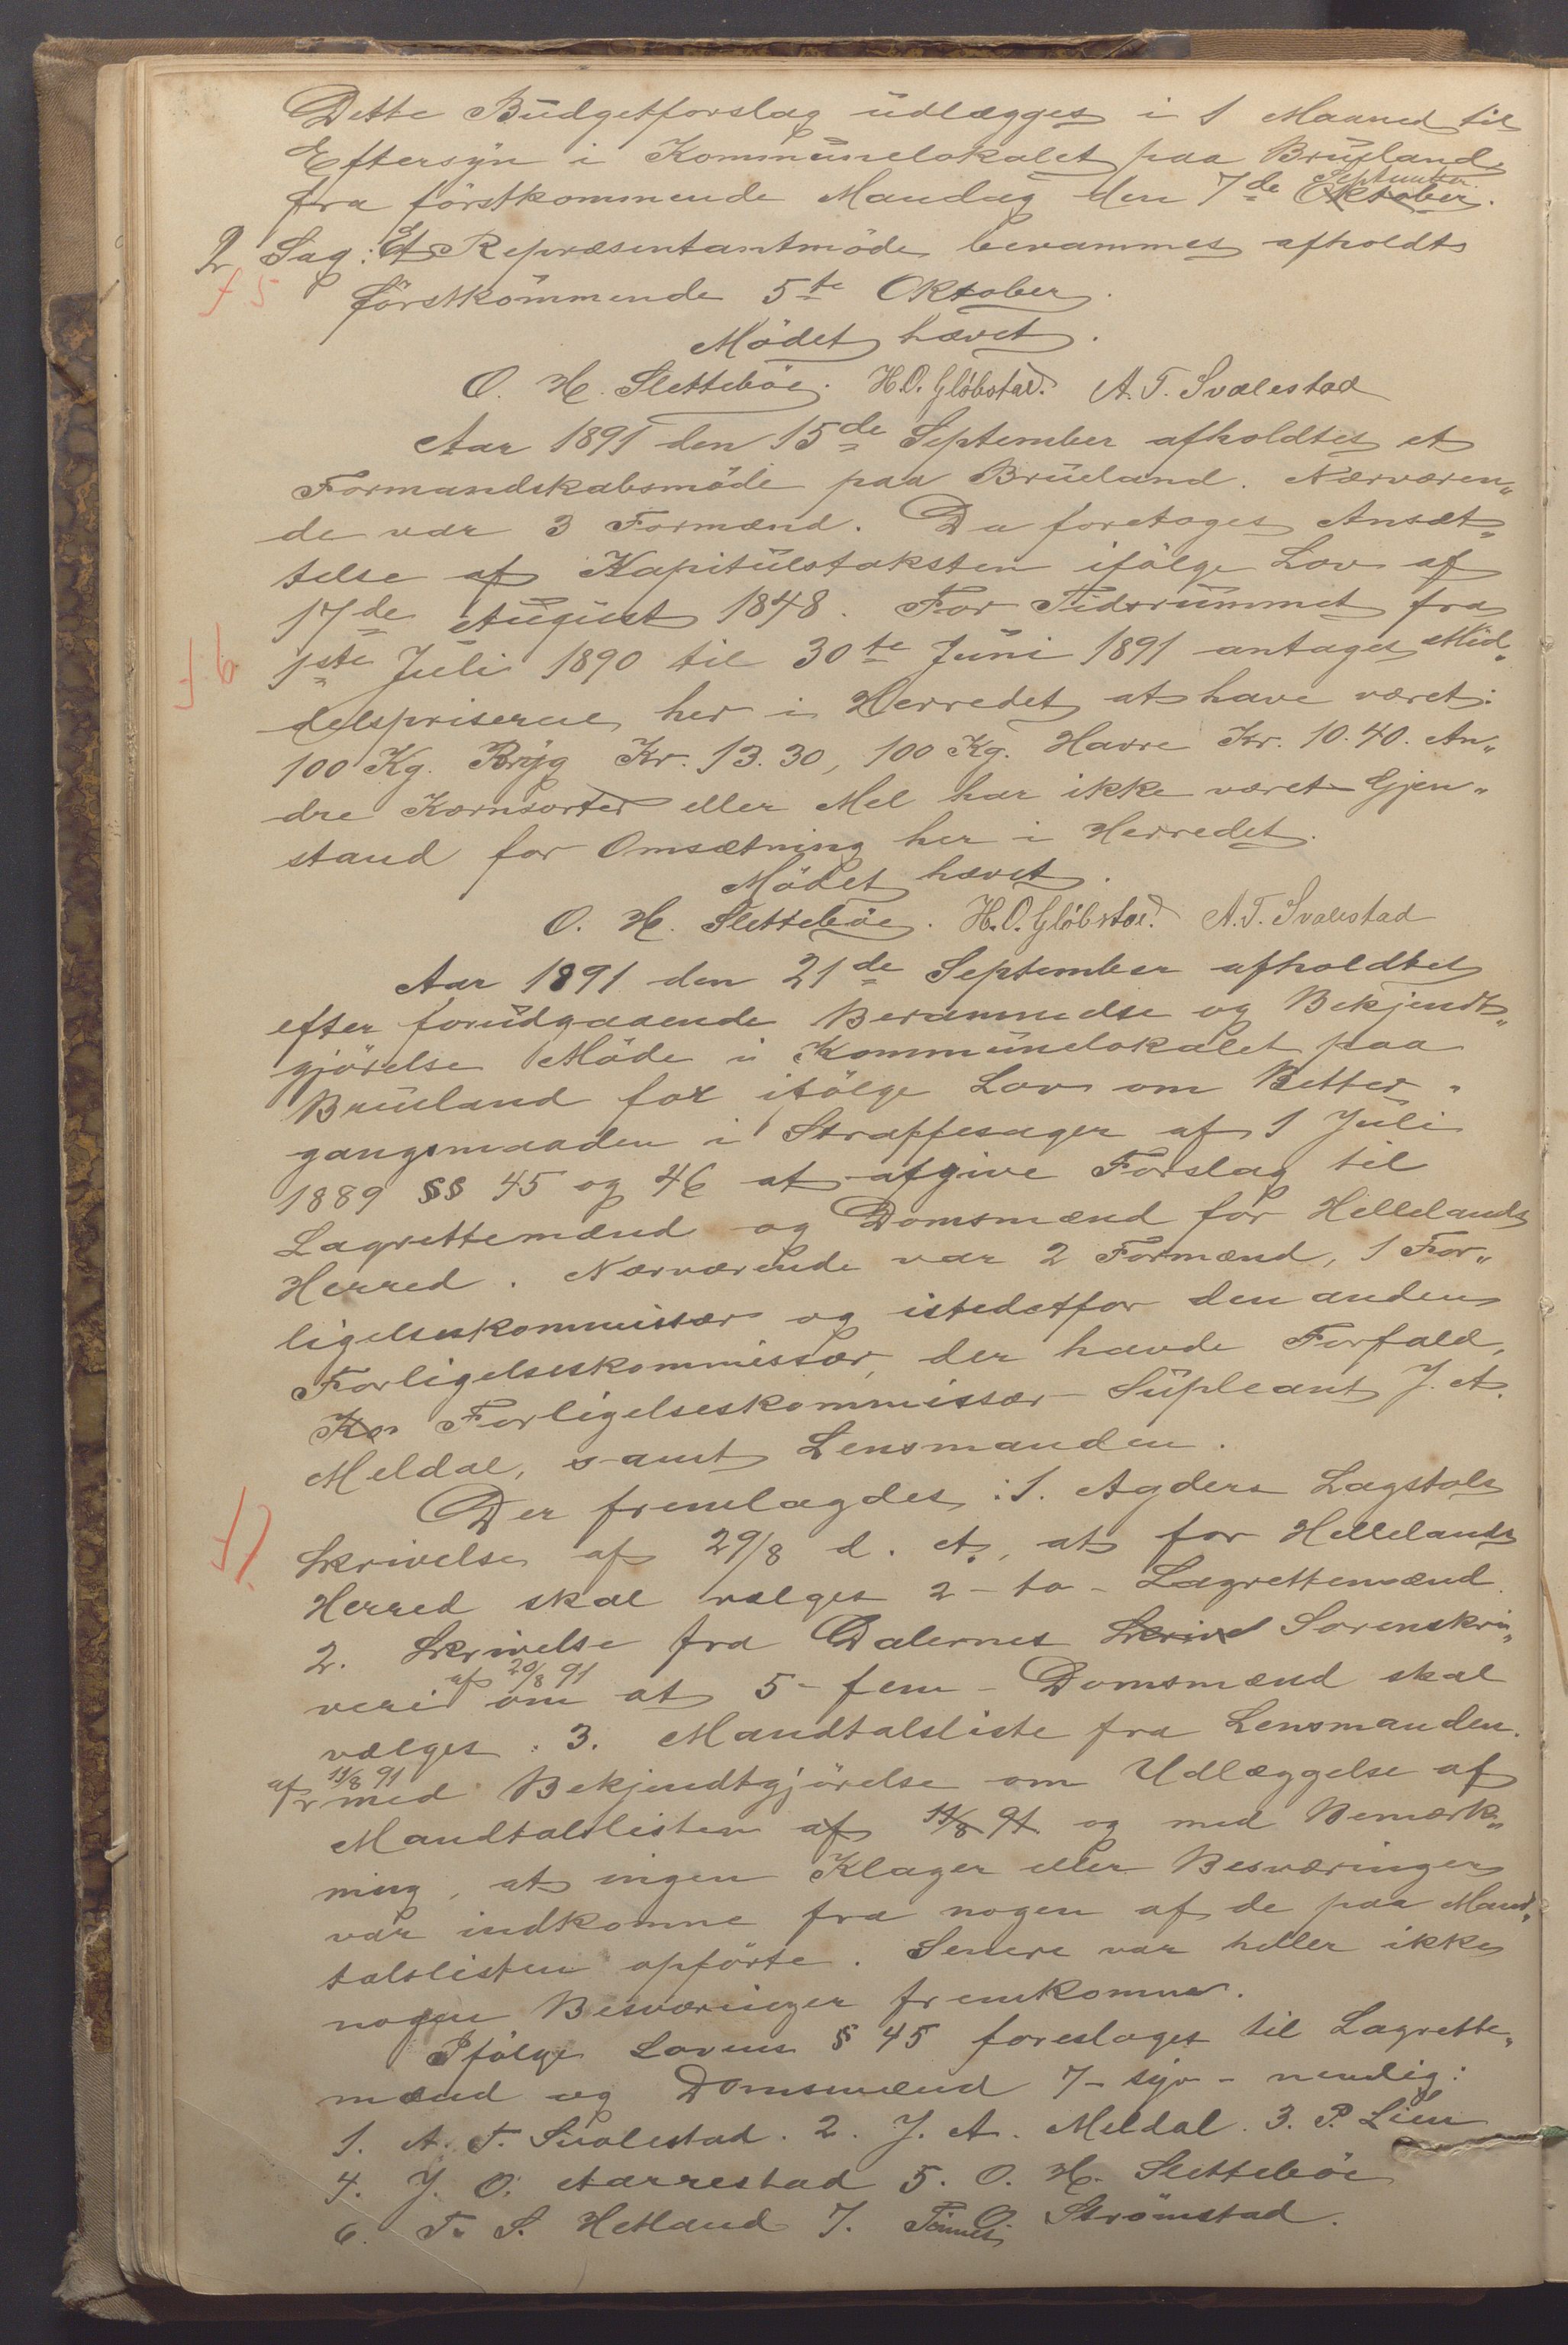 Dette Budgetforslag udlægges i 1 Maaned til
Eftersyn i Kommunelokalet paa Brueland
fra förstkommende Mandag den 7de Oktober September.
2 Sag: Et Repræsentantmöde berammes afholdt
f 5
förstkommende 5te Oktober.
Mödet hævet.
O. H. Slettebøe. H.O. Gløbstad. A. T. Svalestad
Aar 1891 den 15de September afholdtes et
Formandskabsmöde paa Brueland. Nærværen„
de var 3 Formænd. Da foretages Ansæt„
telse af Kapitülstaksten ifölge Lov af
17de August 1848. For Tidsrummet fra
f 6
1ste Juli 1890 til 30te Juni 1891 antages Mid„
delspriserne her i Herredet at have været:
100 Kg. Byg Kr. 13.30, 100 Kg. Havre Kr. 10.40. An„
dre Kornsorter eller Mel har ikke været Gjen„
stand for Omsætning her i Herredet.
Mödet hævet.
O. H. Slettebøe. H.O. Gløbstad. A. T. Svalestad
Aar 1891 den 21de September afholdtes
efter forudgaaende Berammelse og Bekjendt„
gjörelse Möde i Kommunelokalet paa
Brueland for ifölge Lov om Retter„
gangsmaaden i Straffesager af 1 Juli
1889 §§ 45 og 46 at afgive Forslag til
Lagrettemænd og Domsmænd for Hellelands
Herred. Nærværende var 2 Formænd, 1 For„
ligelseskommissær og istedetfor den anden
Forligelseskommissær, der havde Forfald,
Ko Forligelseskommissær-Supleant J. A.
Meldal, samt Lensmanden.
Der fremlagdes: 1. Agders Lagstols
f 7
Skrivelse af 29/8 d. A., at for Hellelands
Herred skal vælges 2 - to - Lagrettemænd.
2. Skrivelse fra Dalernes Skrive Sorenskri„
veri af 20/8 91 om at 5 - fem - Domsmænd skal
vælges. 3. Mandtalsliste fra Lensmanden.
af 11/8 91 med Bekjendtgjörelse om Udlæggelse af
Mandtalslisten af 11/8 91 og med Bemærk„
ning, at ingen Klager eller Besværinger
var indkomne fra nogen af de paa Mand„
talslisten opförte. Senere var heller ikke
nogen Besværinger fremkomne.
Ifölge Lovens § 45 foreslages til Lagrette„
mænd og Domsmænd 7 - syv - nemlig:
1. A. T. Svalestad. 2. J. A. Meldal. 3. P. Lien
4. J. O. Aarrestad 5. O. H. Slettebøe
6. T. S. Hetland 7. Tönnes O. Strömstad.